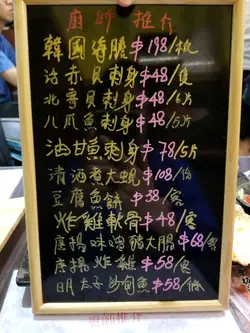 廚師推介
韓國海膽$198/板
活赤貝刺身$48/隻
北寄貝刺身$48/6片
八爪魚刺身$48/5片
油甘魚刺身$78/5片
清酒煮大蜆$108/份
豆腐魚餅$38/客
炸雞軟骨$48/客
唐揚 豬大腸$68/客
唐揚炸雞$58/客
明太子沙甸魚$58/條
廚師推介